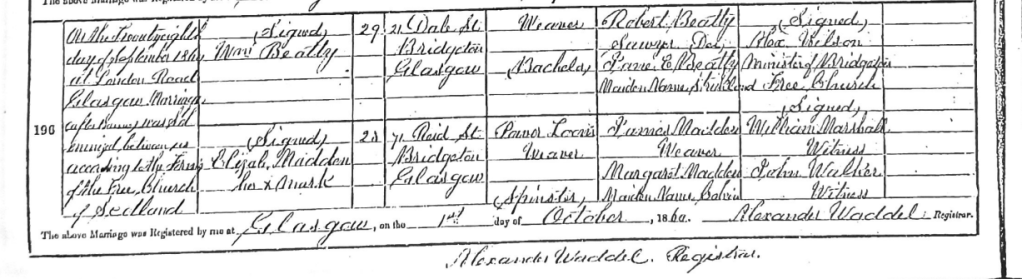 The above Marriage was Registered
196
On the Twentyeighth
day of September 1860
at London Road
Glasgow Marriage
(after Banns) was Solem
emnized between us
according to the Forms
of the Free Church
of Scotland
(Signed)
Wm Beatty
29
21 Dale St.
Bridgeton
Glasgow
Weaver
(Bachelor)
Robert Beatty
Sawyer Dec.
Jane Beatty
Maiden Name
(Signed)
Alex Wilson
Minister of Bridgeton
Free Church
(Signed)
Elizab. Madden
her x mark
71 Reid St.
Bridgeton
Glasgow
Power Loom
Weaver
(Spinster)
James Madden
Weaver
Margaret Madden
Maiden Name
(Signed)
William Marshall
Witness
John Walker
Witness
The above Marriage was Registered by me at Glasgow, on the 1st day of October, 1860. Alexander Waddel, Registrar.
Alexander Waddel. Registrar.